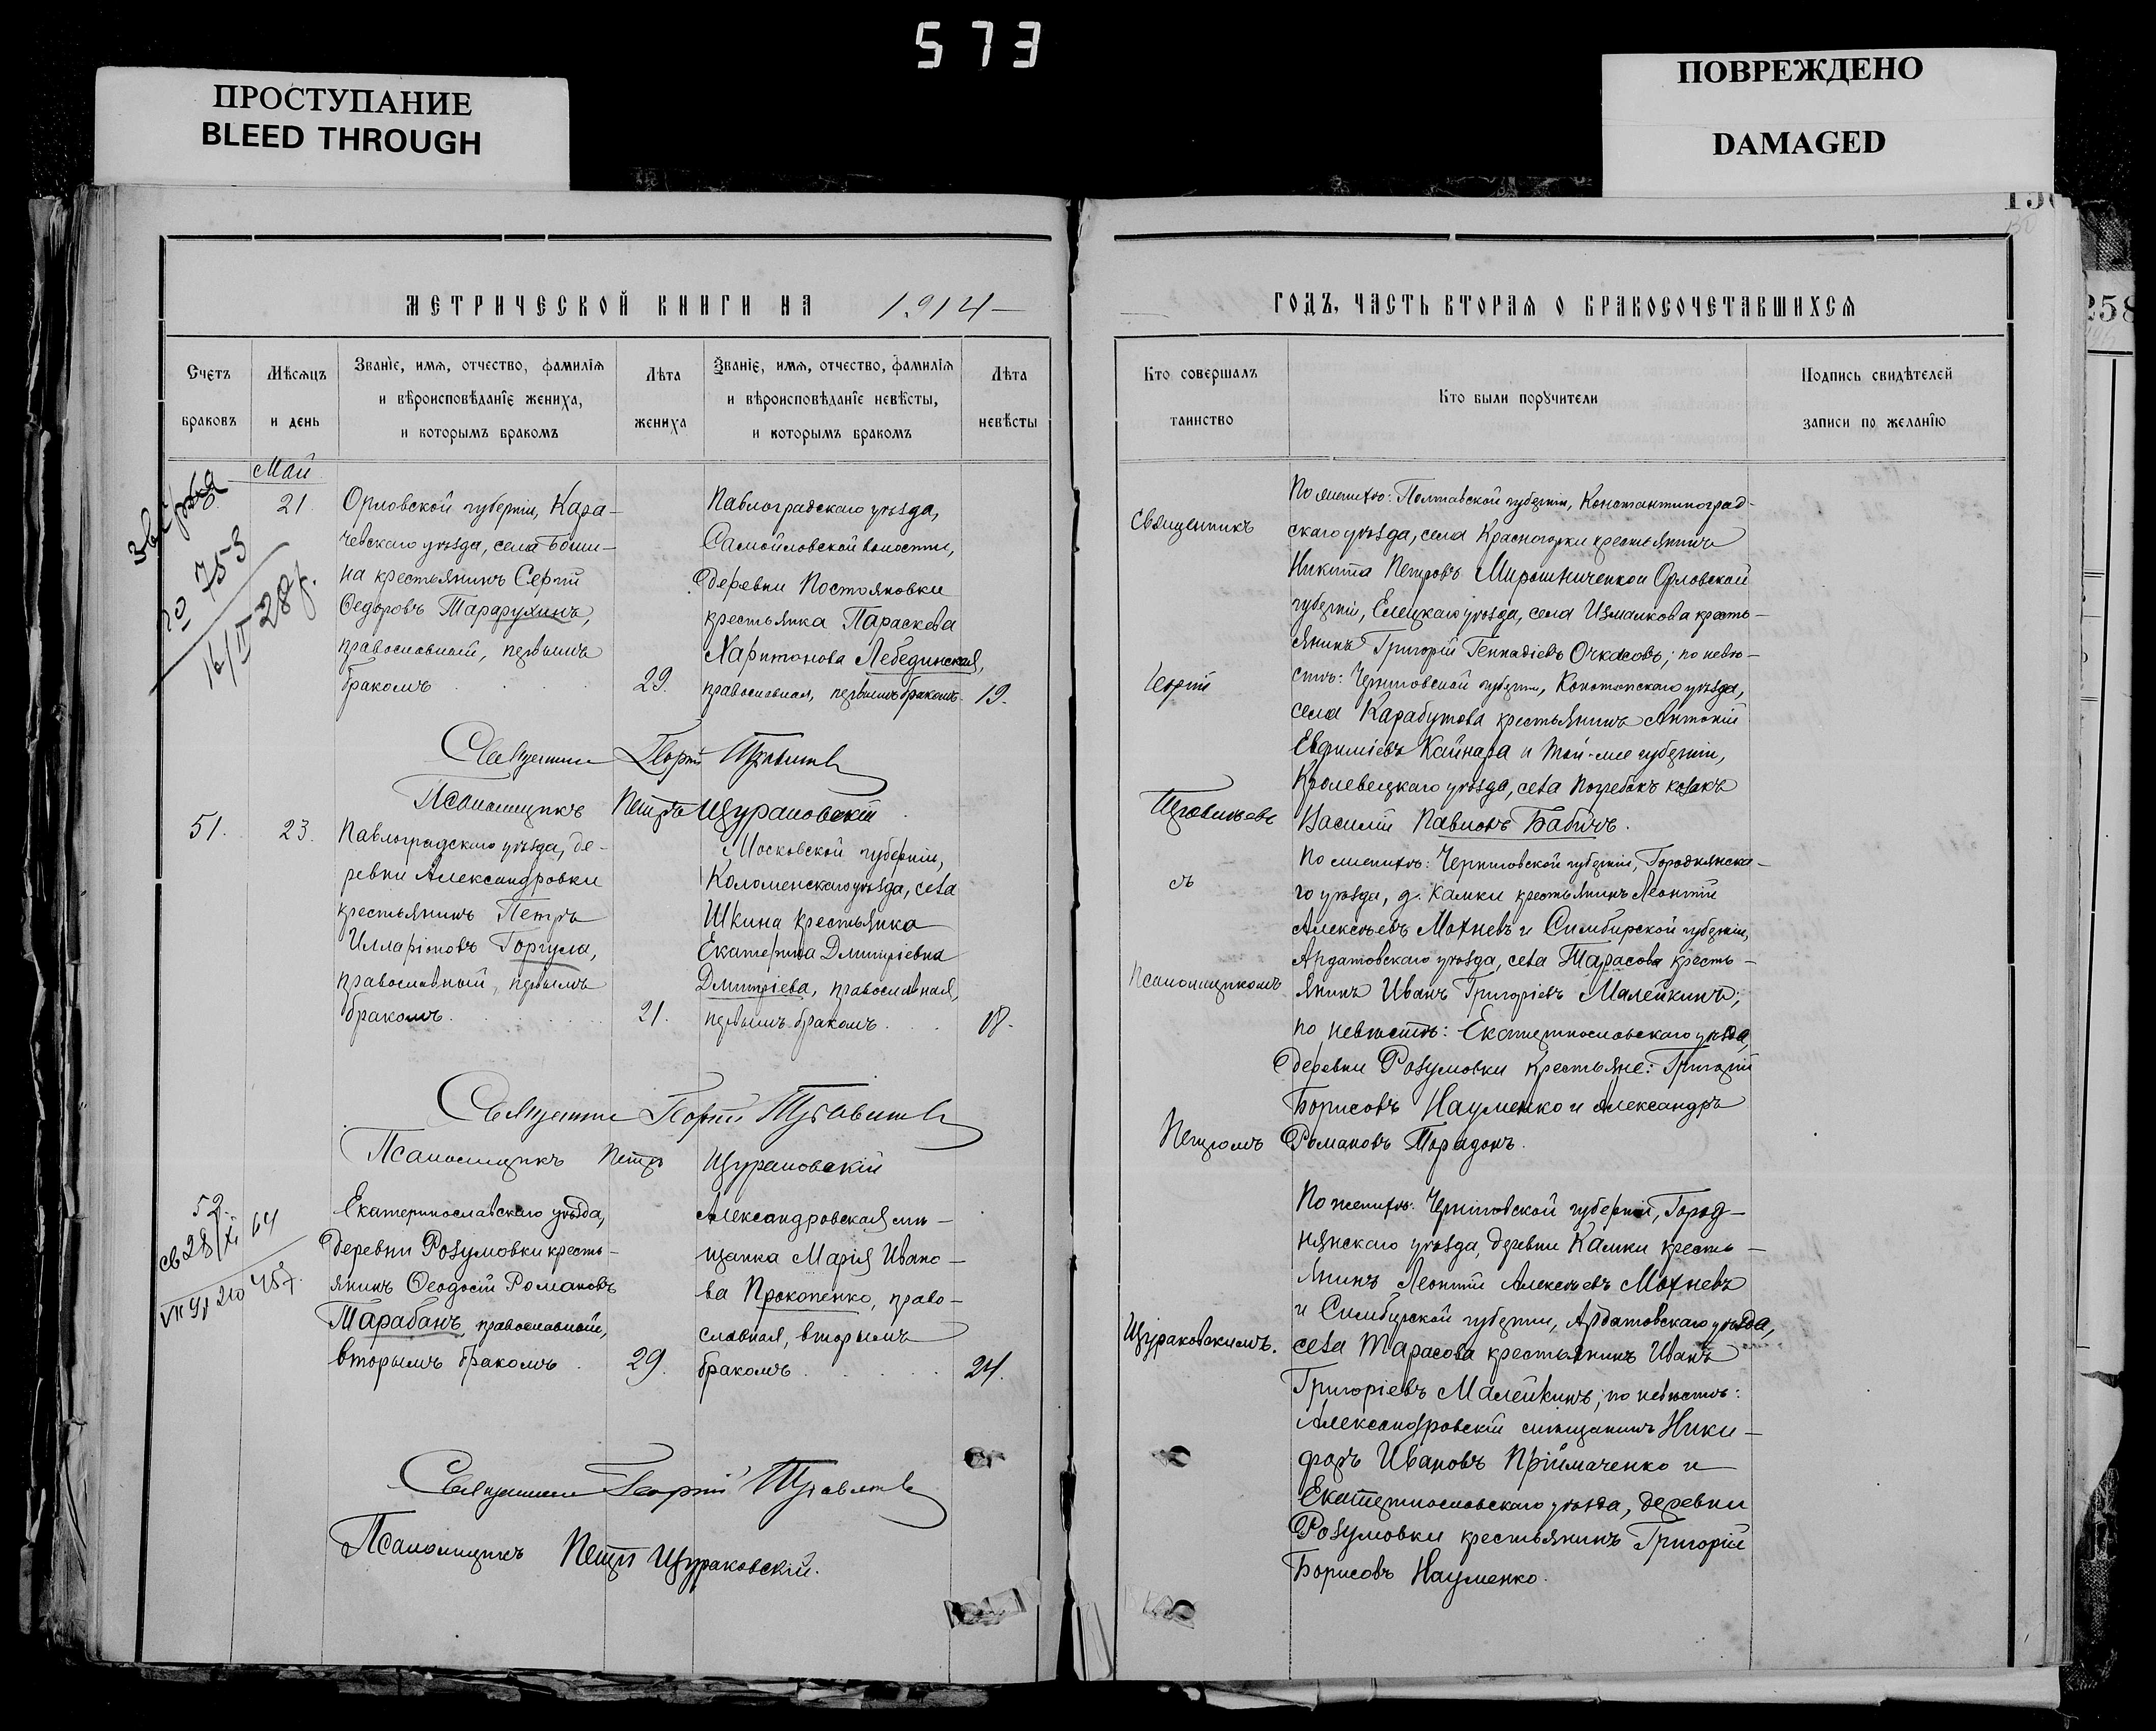 573
ПРОСТУПАНИЕ
BLEED THROUGH
ПОВРЕЖДЕНО
DAMAGED
258
МЕТРИЧЕСКОЙ КНИГИ НА 1914
Счетъ браковъ
Мѣсяцъ и день
Званіе, имя, отчество, фамилія
и вѣроисповѣданіе жениха,
и которымъ бракомъ
Лѣта жениха
Званіе, имя, отчество, фамилія
и вѣроисповѣданіе невѣсты,
и которымъ бракомъ
Лѣта невѣсты
Май
21
№ 753
16/II 28 г.
Орловской губерніи, Кара-
чевскаго уѣзда, села
на крестьянинъ Сергій
Ѳедоровъ Тарарухинъ,
православный, первымъ
бракомъ
29.
Павлоградскаго уѣзда,
Самойловской волости,
деревни Постояновки
крестьянка Параскева
Харитонова Лебединская,
православная, первымъ бракомъ.
19.
Священникъ Георгій
Псаломщикъ Петръ Щураковскій
51.
23.
Павлоградскаго уѣзда, де-
ревни Александровки
крестьянинъ Петръ
Илларіоновъ Горгула,
православный, первымъ
бракомъ.
21.
Московской губерніи,
Коломенскаго уѣзда, села
Шкина крестьянка
Екатерина Димитріевна
Димитріева, православная,
первымъ бракомъ.
18.
Священникъ Георгій
Псаломщикъ Петръ Щураковскій
52.
Екатеринославскаго уѣзда,
деревни Розумовки кресть-
янинъ Ѳеодосій Романовъ
Тарабанъ, православный,
вторымъ бракомъ.
29.
Александровская мѣ-
щанка Марія Ивано-
ва Прокопенко, право-
славная, вторымъ
бракомъ
24.
Священникъ Георгій
Псаломщикъ Петръ Щураковскій.
ГОДЪ, ЧАСТЬ ВТОРАЯ О БРАКОСОЧЕТАВШИХСЯ
Кто совершалъ таинство
Кто были поручители
Подпись свидѣтелей
записи по желанію
Священникъ
Георгій
съ
Псаломщикомъ
Петромъ
Щураковскимъ.
По женихѣ: Полтавской губерніи, Константиноград-
скаго уѣзда, села Красногорки крестьянинъ
Никита Петровъ Мирошниченко и Орловской
губерніи, Елецкаго уѣзда, села Измалкова кресть-
янинъ Григорій Геннадіевъ Очкасовъ; по невѣ-
стѣ: Черниговской губерніи, Конотопскаго уѣзда,
села Карабутова крестьянинъ Антоній
Евфиміевъ Кайнара и той-же губерніи,
Кролевецкаго уѣзда, села Погребокъ козакъ
Василій Павловъ Бабичъ.
По женихѣ: Черниговской губерніи, Городнянска-
го уѣзда, д. Камки крестьянинъ Леонтій
Алексѣевъ Махневъ и Симбирской губерніи,
Ардатовскаго уѣзда, села Тарасова кресть-
янинъ Иванъ Григоріевъ Малейкинъ;
по невѣстѣ: Екатеринославскаго уѣзда,
деревни Розумовки крестьяне: Григорій
Борисовъ Науменко и Александръ
Романовъ
По женихѣ: Черниговской губерніи, Город-
нянскаго уѣзда, деревни Камки кресть-
янинъ Леонтій Алексѣевъ Махневъ
и Симбирской губерніи, Ардатовскаго уѣзда,
села Тарасова крестьянинъ Иванъ
Григоріевъ Малейкинъ; по невѣстѣ:
Александровскій мѣщанинъ Ники-
форъ Ивановъ Пріймаченко и
Екатеринославскаго уѣзда, деревни
Розумовки крестьянинъ Григорій
Борисовъ Науменко.